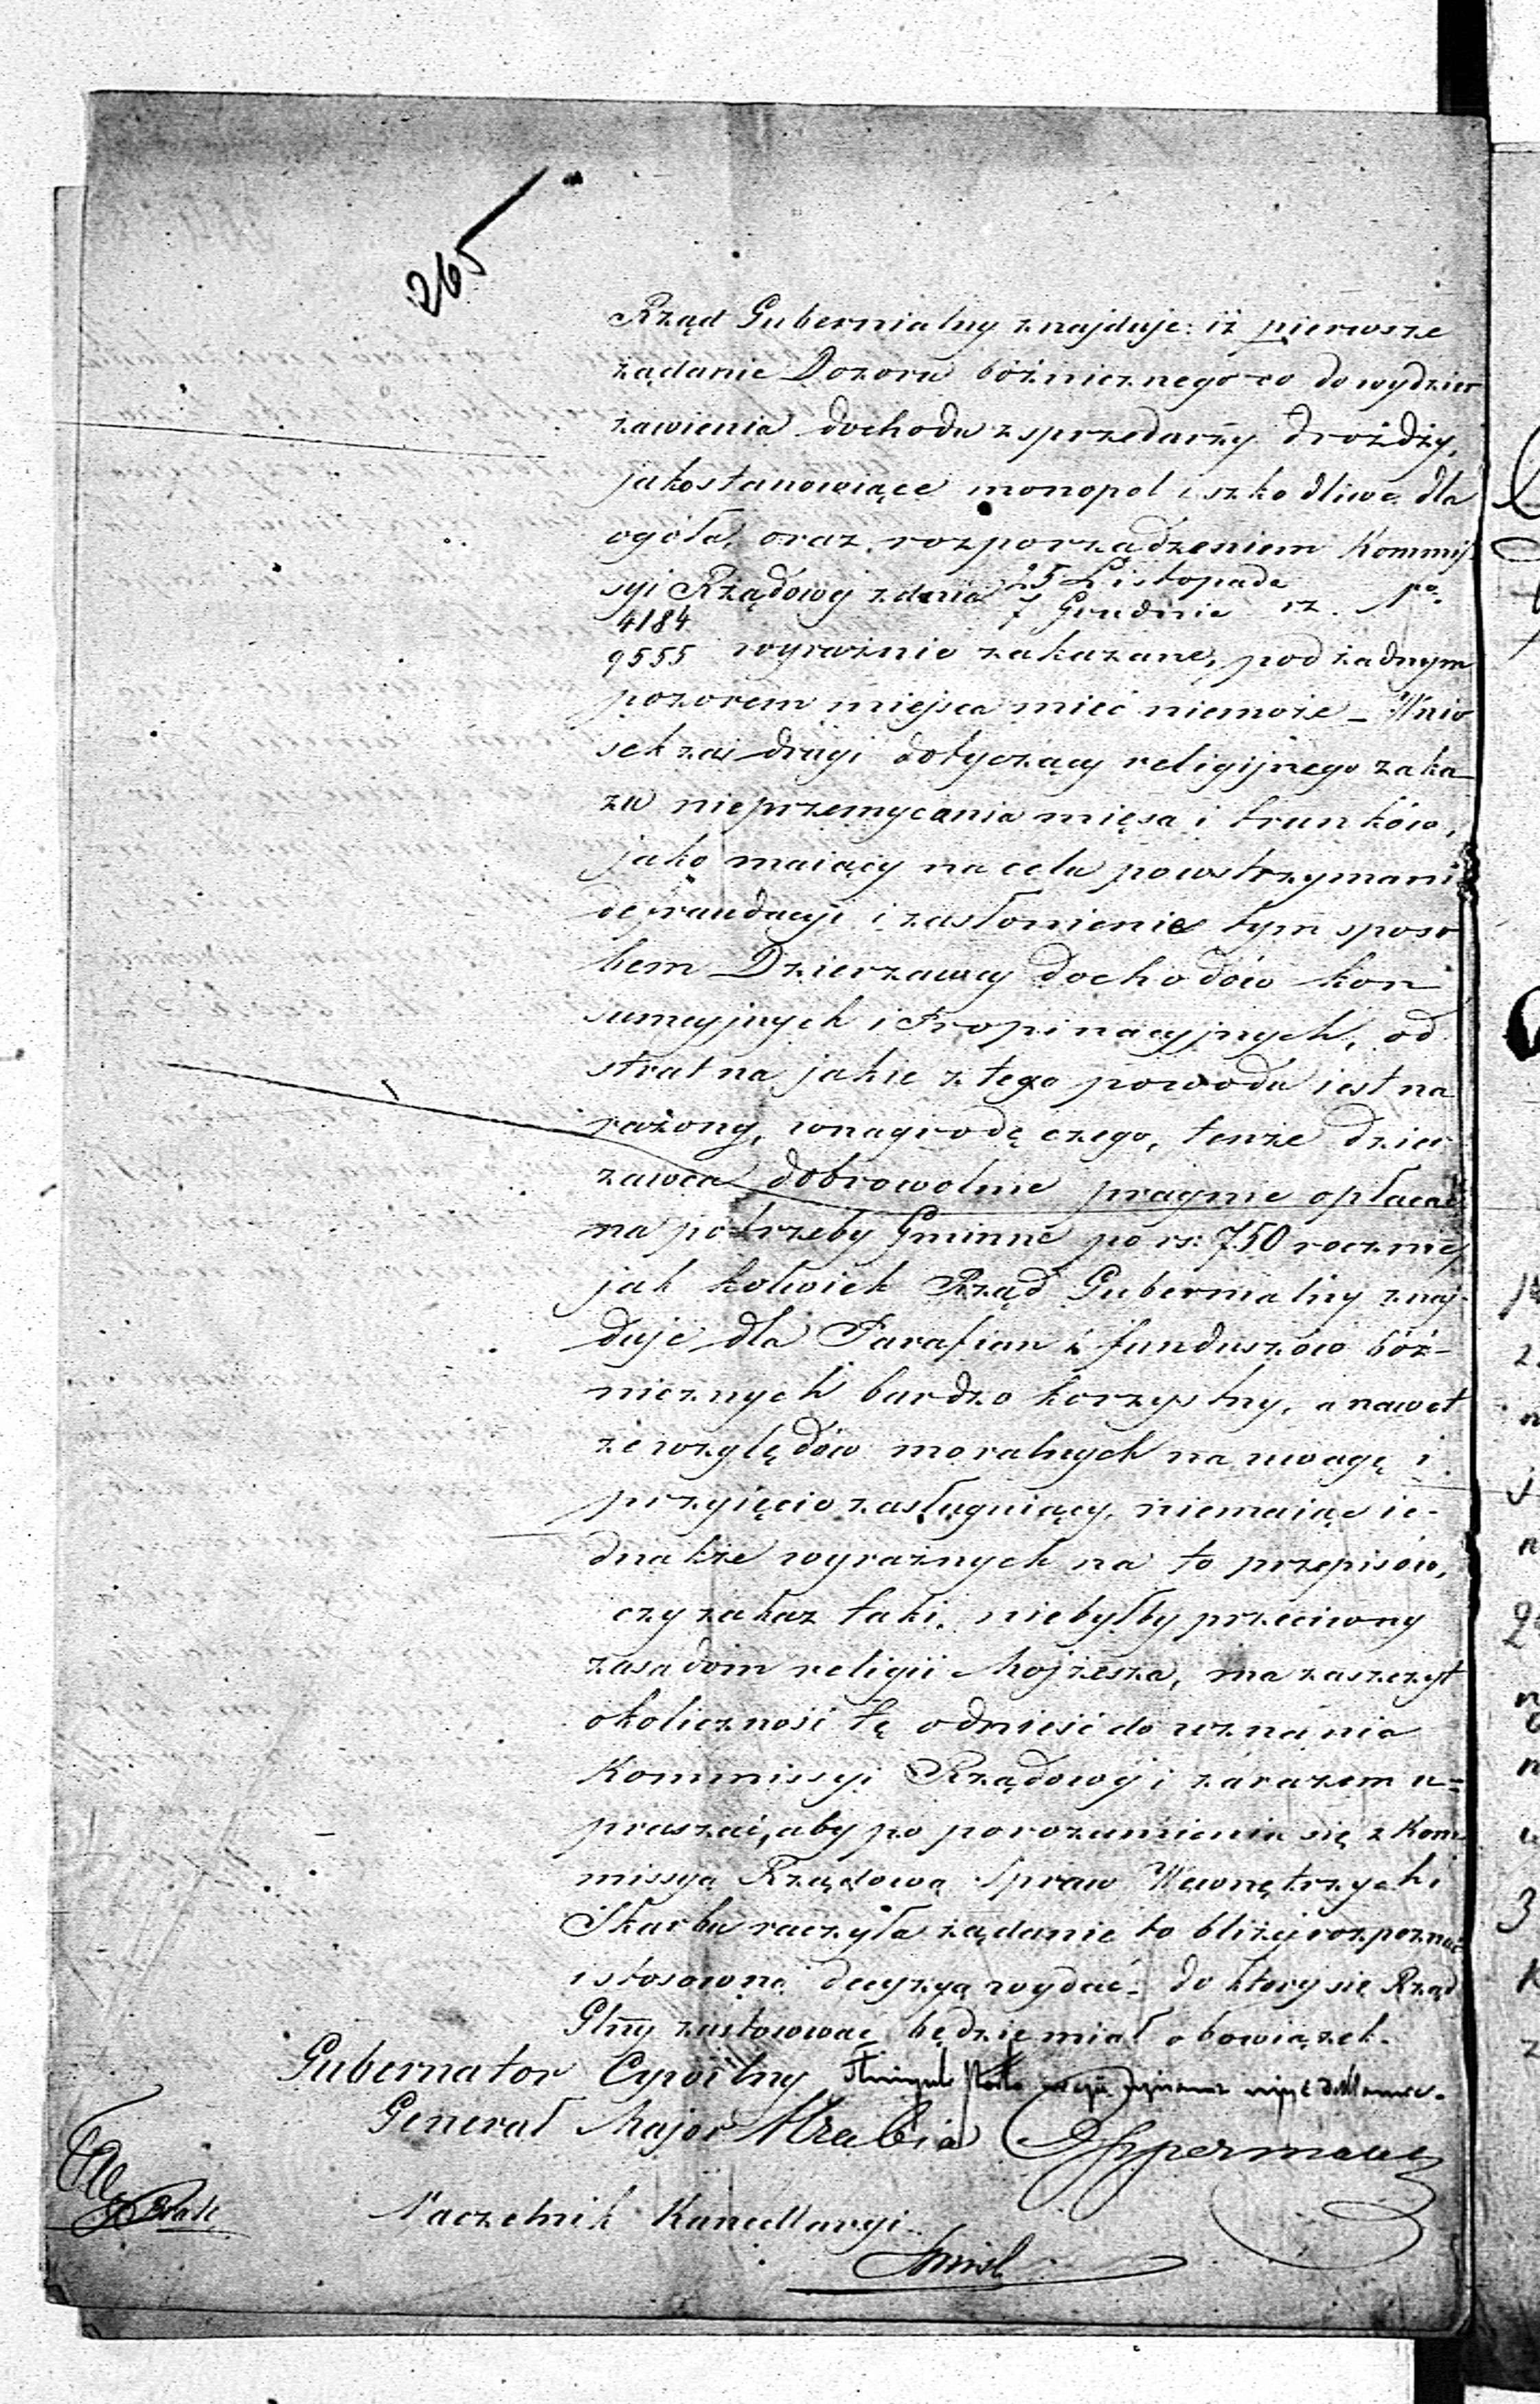 265
Rząd Gubernialny znajduje: iż pierwsze
żądanie Dozoru bóżnicznego co do wydzier
żawienia dochodu z sprzedarzy drożdży,
jako stanowiące monopol i szkodliwe dla
ogółu, oraz rozporządzeniem Kommis
syi Rządowej z dnia 25 Listopada
7 Grudnia rz. No
4184
9555 wyraźnie zakazane, pod żadnym
pozorem miejsca mieć niemoże – Wnio
sek zaś drugi dotyczący religijnego zaka
zu nieprzemycania mięsa i trunków,
jako maiący na celu powstrzymani
defraudacyi i zasłonienie tym sposo
bem Dzierzawcy dochodów kon
sumcyjnych i Propinacyjnych, od
strat na jakie z tego powodu iest na
rażony, w nagrodę czego, tenże dzier
żawca dobrowolnie pragnie opłacać
na potrzeby Gminne po rs: 750 rocznie,
jak kolwiek Rząd Gubernialny znaj-
duje dla Parafian i funduszów bóż-
nicznych bardzo korzystny, a nawet
ze względów moralnych na uwagę i
przyięcie zasługuiący, niemaiąc ie-
dnakże wyraźnych na to przepisów,
czy zakaz taki, niebyłby przeciwny
zasadom religii Mojżesza, ma zaszczyt
okoliczność tę odnieść do uznania
Kommissyi Rządowej i zarazem u=
praszać, aby po porozumieniu się z Kom
missyą Rządową Spraw Wewnętrznych i
Skarbu raczyła żądanie to bliżej rozpoznać
i stosowną decyzyą wydać – do której się Rząd
Glny zastosować będzie miał obowiązek.
Gubernator Cywilny
Generał Major Hrabia Oppermann
Naczelnik Kancellaryi